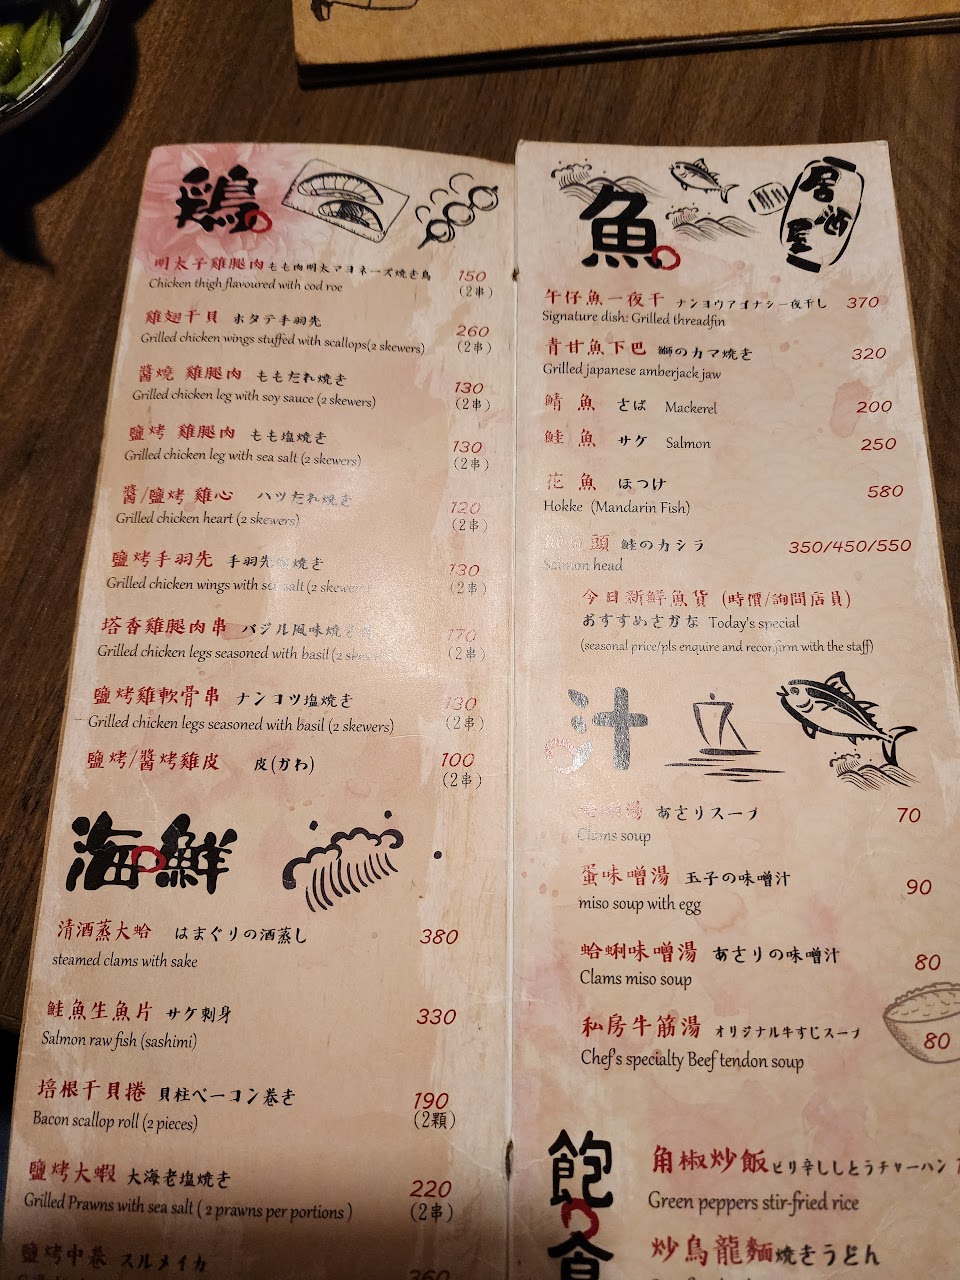 鶏
明太子雞腿肉 もも肉明太マヨネーズ焼き鳥 150
Chicken thigh flavoured with cod roe (2串)
雞翅干貝 ホタテ手羽先 260
Grilled chicken wings stuffed with scallops(2 skewers) (2串)
醬燒 雞腿肉 ももだれ焼き 130
Grilled chicken leg with soy sauce (2 skewers) (2串)
鹽烤 雞腿肉 もも塩焼き 130
Grilled chicken leg with sea salt (2 skewers) (2串)
醬/鹽烤 雞心 ハツだれ焼き 120
Grilled chicken heart (2 skewers) (2串)
鹽烤手羽先 手羽先 焼き 130
Grilled chicken wings with sea salt (2 skewers) (2串)
塔香雞腿肉串 バジル風味焼 170
Grilled chicken legs seasoned with basil (2 (2串)
鹽烤雞軟骨串 ナンコツ塩焼き 130
Grilled chicken legs seasoned with basil (2 skewers) (2串)
鹽烤/醬烤雞皮 皮(かわ) 100
(2串)
海鮮
清酒蒸大蛤 はまぐりの酒蒸し 380
steamed clams with sake
鮭魚生魚片 サケ刺身 330
Salmon raw fish (sashimi)
培根干貝捲 貝柱ベーコン巻き 190
Bacon scallop roll (2 pieces) (2顆)
鹽烤大蝦 大海老塩焼き 220
Grilled Prawns with sea salt ( 2 prawns per portions ) (2串)
鹽烤中卷 スルメイカ
360
魚
居酒屋
午仔魚一夜干 ナンヨウアゴナシ一夜干し 370
Signature dish: Grilled threadfin
青甘魚下巴 鰤のカマ焼き 320
Grilled japanese amberjack jaw
鯖 魚 さば Mackerel 200
鮭 魚 サケ Salmon 250
花 魚 ほっけ 580
Hokke (Mandarin Fish)
頭 鮭のカシラ 350/450/550
Salmon head
今日新鮮魚貨 (時價/詢問店員)
おすすめさかな Today's special
(seasonal price/pls enquire and reconfirm with the staff)
汁
湯 あさりスープ 70
Clams soup
蛋味噌湯 玉子の味噌汁 90
miso soup with egg
蛤蜊味噌湯 あさりの味噌汁 80
Clams miso soup
私房牛筋湯 オリジナル牛すじスープ 80
Chef's specialty Beef tendon soup
飽食
角椒炒飯 ピリ辛ししとうチャーハン
Green peppers stir-fried rice
炒烏龍麵 焼きうどん